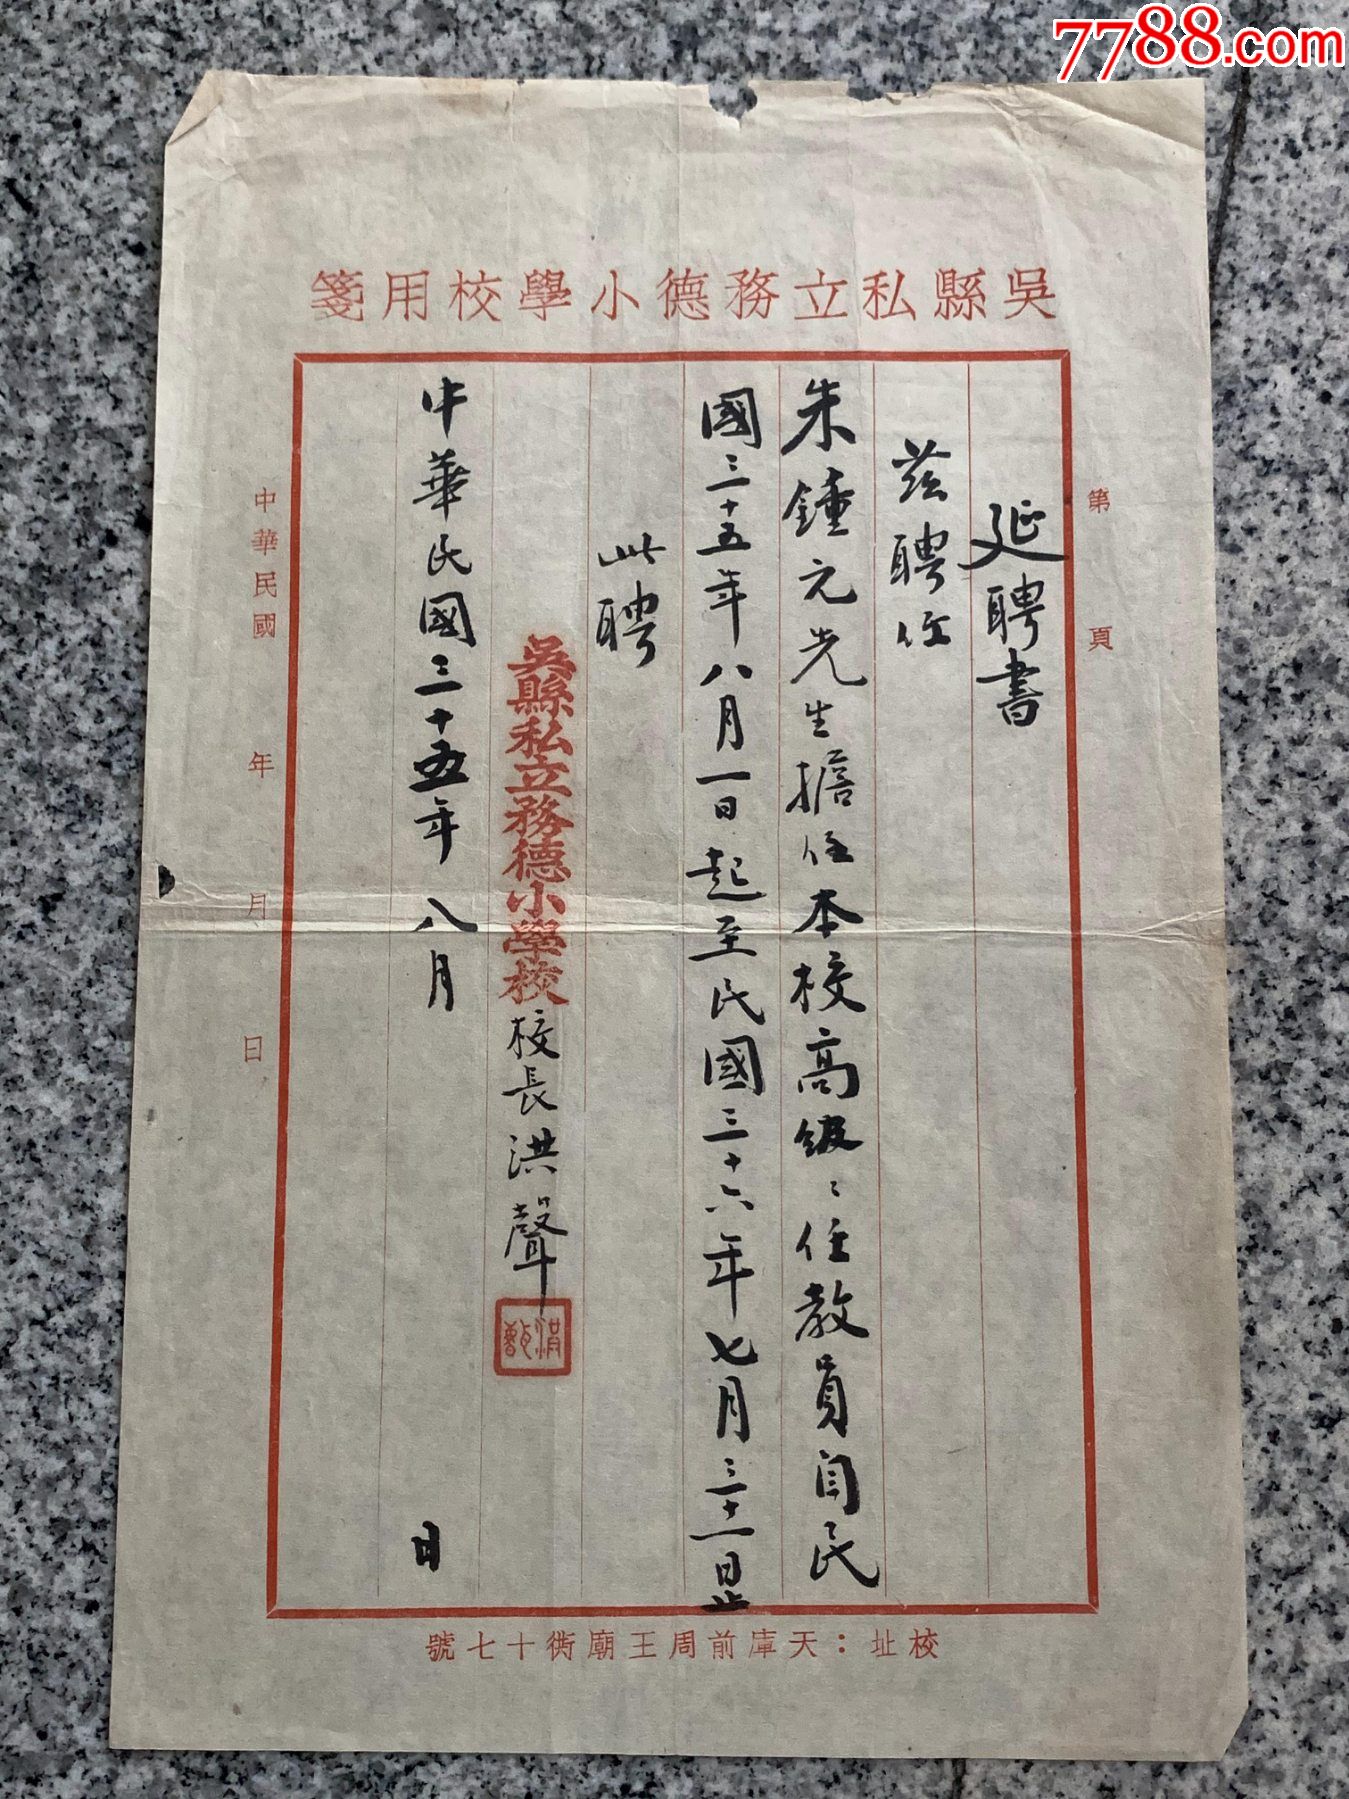 7788.com
吳縣私立務德小學校用箋
第 頁
延聘書
茲聘任
朱鍾元先生擔任本校高級〻任教員自民
國三十五年八月一日起至民國三十六年七月三十一日止
此聘
吳縣私立務德小學校
校長洪聲
中華民國三十五年八月 日
中華民國 年 月 日
校址：天庫前周王廟衖十七號